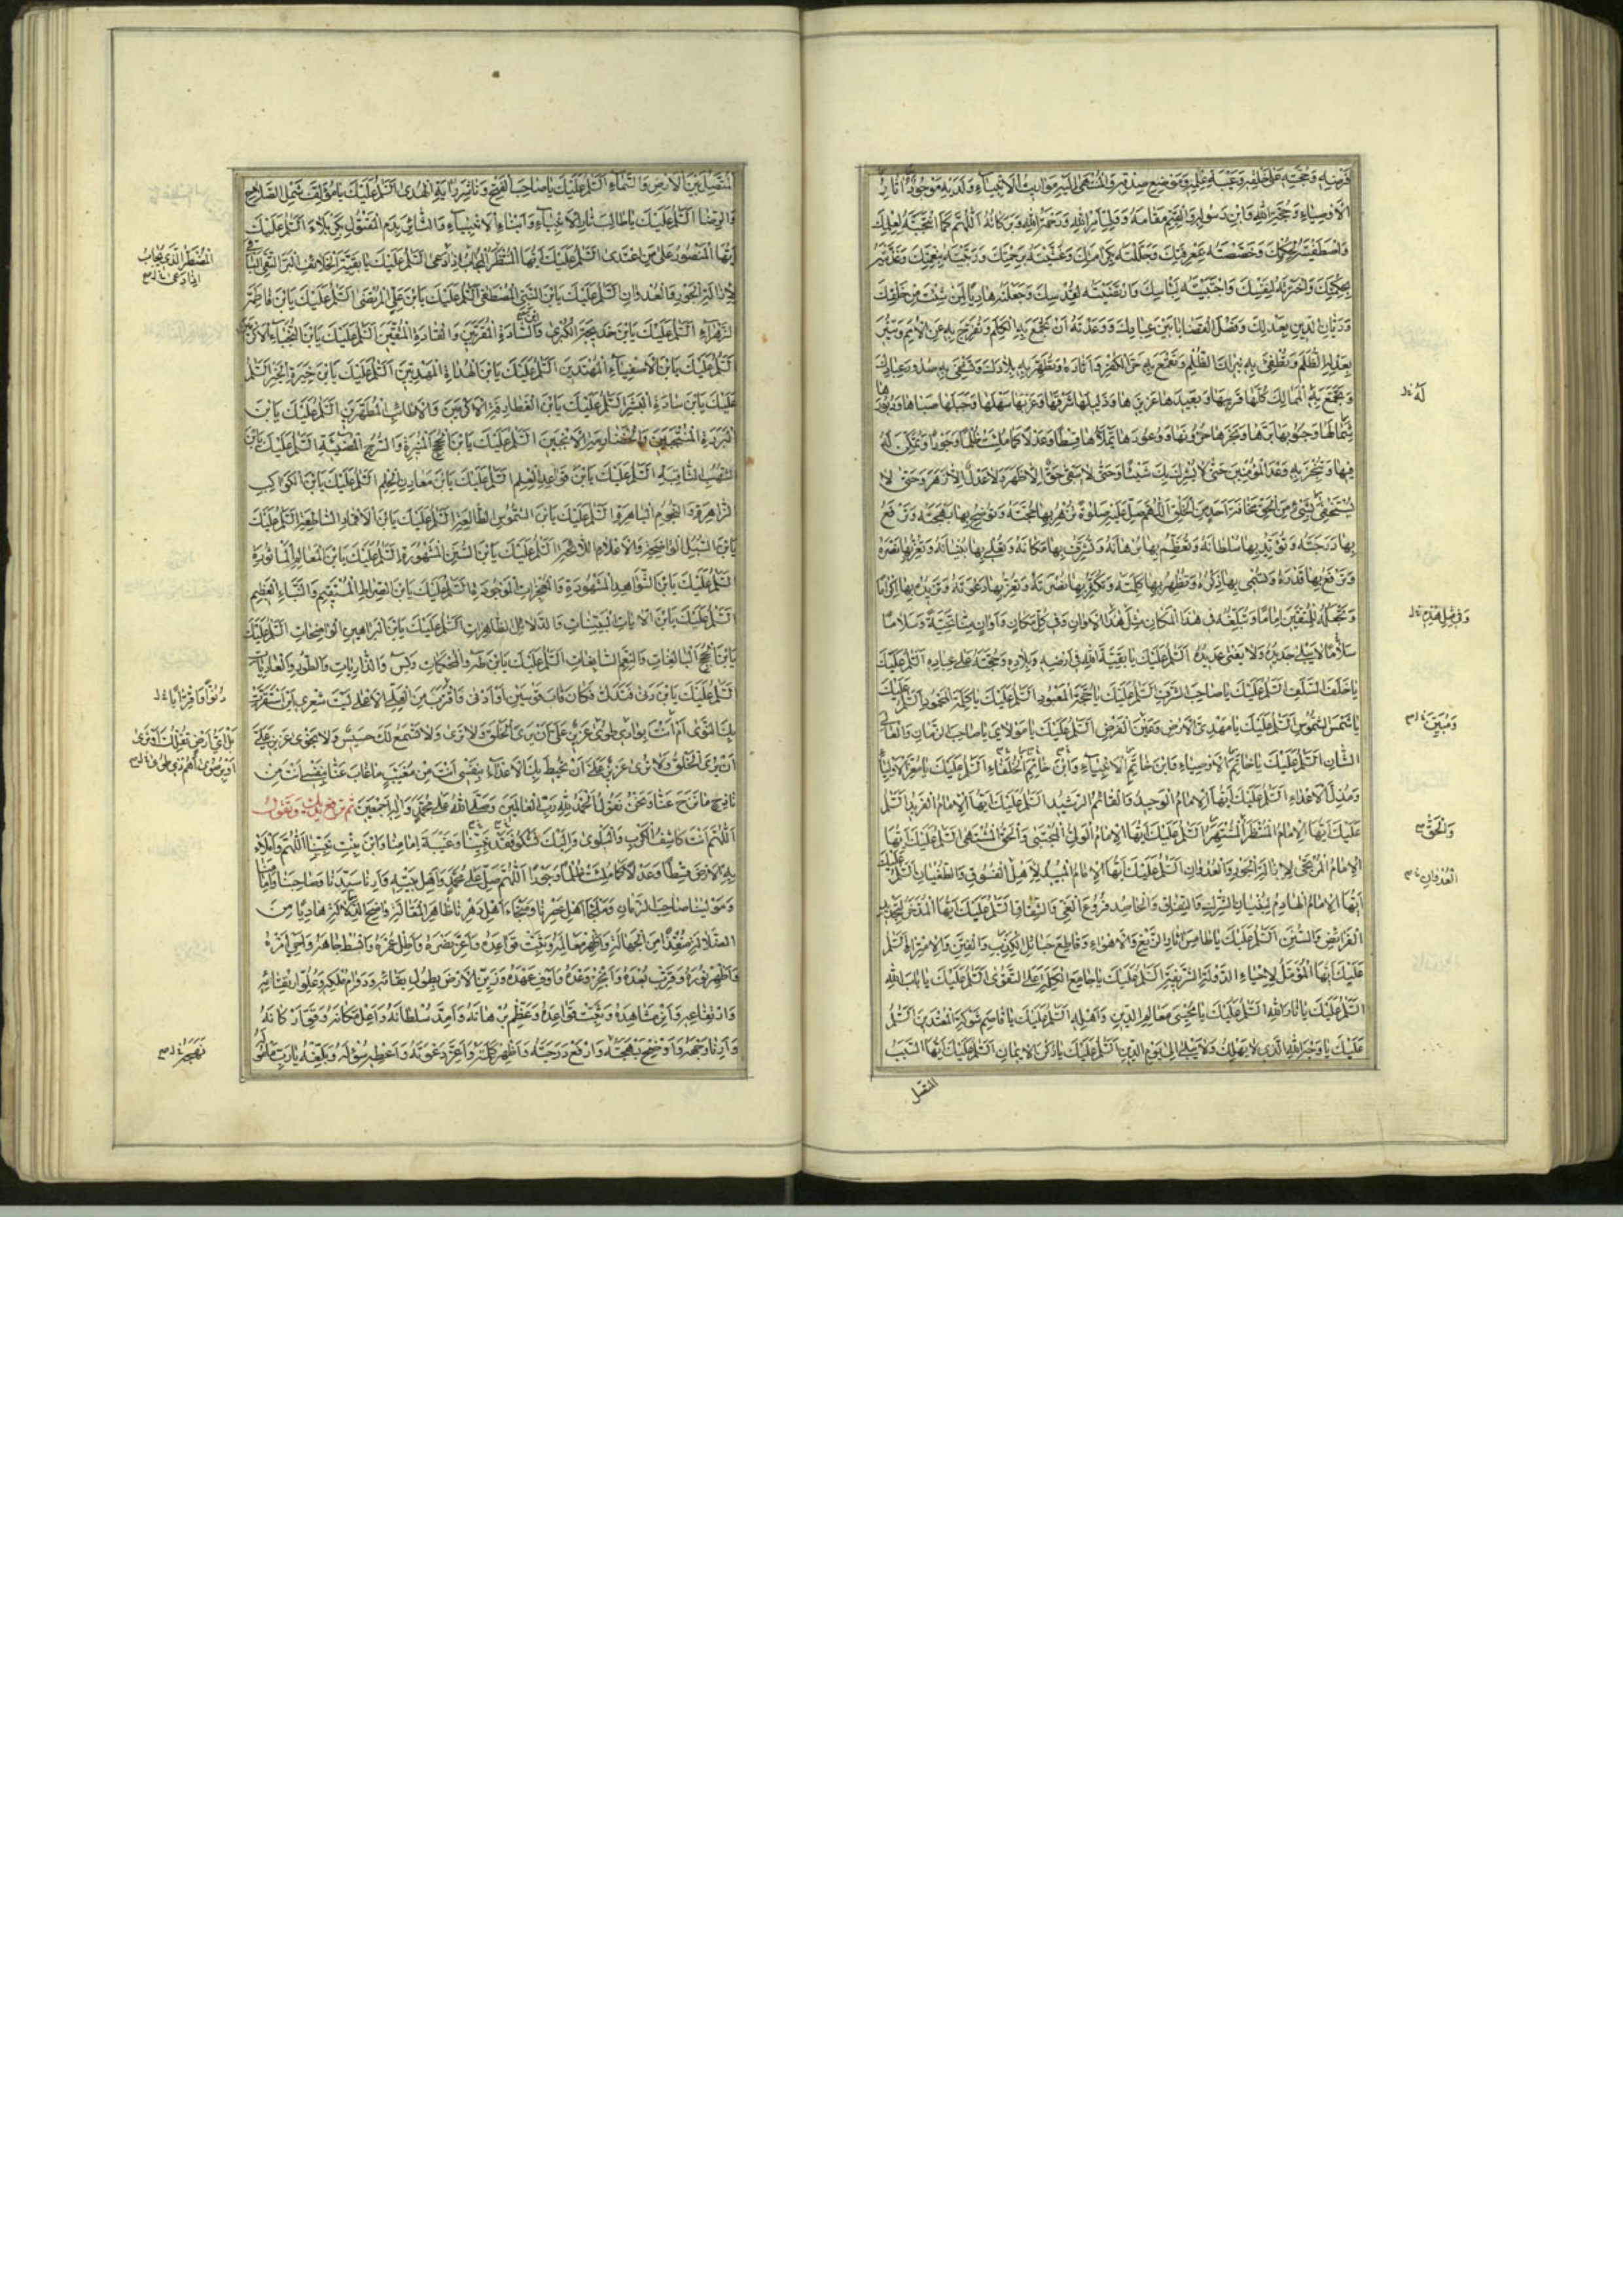 الأوصياء وحجة الله وابن رسوله والقيم مقامه وولي أمر الله ورحمة الله وبركاته اللهم كما انتجبته لعلمك
واصطفيته لحكمك وخصصته بمعرفتك وجللته بكرامتك وغشيته برحمتك وربيته بنعمتك وغذيته
بحكمتك واخترته لنفسك واجتبيته لبأسك وارتضيته لقدسك وجعلته هاديا لمن شئت من خلقك
وديان الدين بعدلك وفصل القضايا بين عبادك ووعدته أن تجمع به الكلم وتفرج به عن الأمم وتنير
بعدله الظلم وتطفئ به نيران الظلم وتقمع به حر الكفر وآثاره وتطهر به بلادك وتشفي به صدور عبادك
وتجمع به الممالك كلها قريبها وبعيدها عزيزها وذليلها شرقها وغربها سهلها وجبلها صباها ودبورها
شمالها وجنوبها برها وبحرها حزونها ووعورها يملأها قسطا وعدلا كما ملئت ظلما وجورا وتمكن له
فيها وتنجز به وعد المؤمنين حتى لا يشرك بك شيئا وحتى لا يبقى حق إلا ظهر ولا عدل إلا زهر وحتى لا
يستخفي بشيء من الحق مخافة أحد من الخلق اللهم صل عليه صلوة تظهر بها حجته وتوضح بها بهجته وترفع
بها درجته وتؤيد بها سلطانه وتعظم بها برهانه وتشرف بها مكانه وتعلي بها بنيانه وتعز بها نصره
وترفع بها قدره وتسمي بها ذكره وتظهر بها كلمته وتكثر بها نصرته وتعز بها دعوته وتزيده بها إكراما
وتجعله للمتقين إماما وتبلغه في هذا المكان مثل هذا الأوان وفي كل مكان وأوان منا تحية وسلاما
سلاما لا يبلى جديده ولا يفنى عديده السلم عليك يا بقية الله في أرضه وبلاده وحجته على عباده السلم عليك
يا خلف السلف السلم عليك يا صاحب الشرف السلم عليك يا حجة المعبود السلم عليك يا كلمة المحمود السلم عليك
يا شمس الشموس السلم عليك يا مهدي الأرض وعين الفرض السلم عليك يا مولاي يا صاحب الزمان والعالي
الشان السلم عليك يا خاتم الأوصياء وابن خاتم الأنبياء السلم عليك يا معز الأولياء
ومذل الأعداء السلم عليك أيها الإمام الوحيد والقائم الرشيد السلم عليك أيها الإمام الفريد السلم
عليك أيها الإمام المنتظر السلم عليك أيها الإمام الولي المجتبى والحق المشتهى السلم عليك أيها
الإمام المرتجى لإزالة الجور والعدوان السلم عليك أيها الإمام المبيد لأهل الفسوق والطغيان السلم عليك
أيها الإمام الهادم لبنيان الشرك والنفاق والحاصد فروع الغي والشقاق السلم عليك أيها المدخر لتجديد
الفرائض والسنن السلم عليك يا طامس آثار الزيغ والأهواء وقاطع حبائل الكذب والفتن والامتراء السلم
عليك أيها المؤمل لإحياء الدولة الشريفة السلم عليك يا جامع الكلمة على التقوى السلم عليك يا باب الله
السلم عليك يا ثار الله السلم عليك يا محيي معالم الدين وأهله السلم عليك يا قاصم شوكة المعتدين السلم
عليك يا وجه الله الذي لا يهلك ولا يبلى إلى يوم الدين السلم عليك يا ركن الإيمان السلم عليك أيها السبب
المتصل
له
العدوان
والحق
المتصل بين الأرض والسماء السلم عليك يا صاحب الفتح وناشر راية الهدى السلم عليك يا مؤلف شمل الصلاح
والرضا السلم عليك يا طالب ثار الأنبياء وأبناء الأنبياء والثائر بدم المقتول بكربلاء السلم عليك
أيها المنصور على من اعتدى السلم عليك أيها المنتظر المجاب إذا دعى السلم عليك يا بقية الخلائف البر التقي الباقي
لإزالة الجور والعدوان السلم عليك يا ابن النبي المصطفى السلم عليك يا ابن علي المرتضى السلم عليك يا ابن فاطمة
الزهراء السلم عليك يا ابن خديجة الكبرى وابن السادة المقربين والقادة المتقين السلم عليك يا ابن النجباء الأكرمين
السلم عليك يا ابن الأصفياء المهتدين السلم عليك يا ابن الهداة المهديين السلم عليك يا ابن خيرة الخير السلم
عليك يا ابن سادة البشر السلم عليك يا ابن الغطارفة الأكرمين والأطائب المطهرين السلم عليك يا ابن
البررة المنتجبين والخضارمة الأنجبين السلم عليك يا ابن الحجج المنيرة والسرج المضيئة السلم عليك يا ابن
الشهب الثاقبة السلم عليك يا ابن قواعد العلم السلم عليك يا ابن معادن الحلم السلم عليك يا ابن الكواكب
الزاهرة والنجوم الباهرة السلم عليك يا ابن الشموس الطالعة السلم عليك يا ابن الأقمار الساطعة السلم عليك
يا ابن السبل الواضحة والأعلام اللائحة السلم عليك يا ابن السنن المشهورة السلم عليك يا ابن المعالم المأثورة
السلم عليك يا ابن الشواهد المشهودة والمعجزات الموجودة السلم عليك يا ابن الصراط المستقيم والنباء العظيم
السلم عليك يا ابن الآيات البينات والدلائل الظاهرات السلم عليك يا ابن البراهين الواضحات السلم عليك
يا ابن الحجج البالغات والنعم السابغات السلم عليك يا ابن طه والمحكمات ويس والذاريات والطور والعاديات
السلم عليك يا ابن من دنى فتدلى فكان قاب قوسين أو أدنى واقترب من العلي الأعلى ليت شعري أين استقرت
بك النوى أم أنت بوادي طوى عزيز علي أن يرى الخلق ولا ترى ولا يسمع لك حسيس ولا نجوى عزيز علي
أن يرى الخلق ولا ترى عزيز علي أن تحيط بك الأعداء بنفسي أنت من مغيب ما غاب عنا بنفسي أنت من
نازح ما نزح عنا ونحن نقول الحمد لله رب العالمين وصلى الله على محمد وآله أجمعين ثم ترفع يديك وتقول
اللهم أنت كاشف الكرب والبلوى وإليك نشكو فقد نبينا وغيبة إمامنا وابن بنت نبينا اللهم واملأ
به الأرض قسطا وعدلا كما ملئت ظلما وجورا اللهم صل على محمد وأهل بيته وأرنا سيدنا وصاحبنا وإمامنا
ومولينا صاحب الزمان وملجأ أهل عصرنا ومنجا أهل دهرنا ظاهر المقالة واضح الدلالة هاديا من
الضلالة منقذا من الجهالة وأظهر معالمه وثبت قواعده وأعز نصره وأطل عمره وابسط جاهه وأحي أمره
وأظهر نوره وقرب بعده وأنجز وعده وأوف عهده وزين الأرض بطول بقائه ودوام ملكه وعلو ارتقائه
وارتفاعه وأنر مشاهده وثبت قواعده وعظم برهانه وأمد سلطانه وأعل مكانه وقو أركانه
وأرنا وجهه وأوضح بهجته وارفع درجته وأظهر كلمته وأعز دعوته وأعطه سؤله وبلغه يا رب مأموله
المضطر الذي يجاب
إذا دعى
دنوا واقترابا